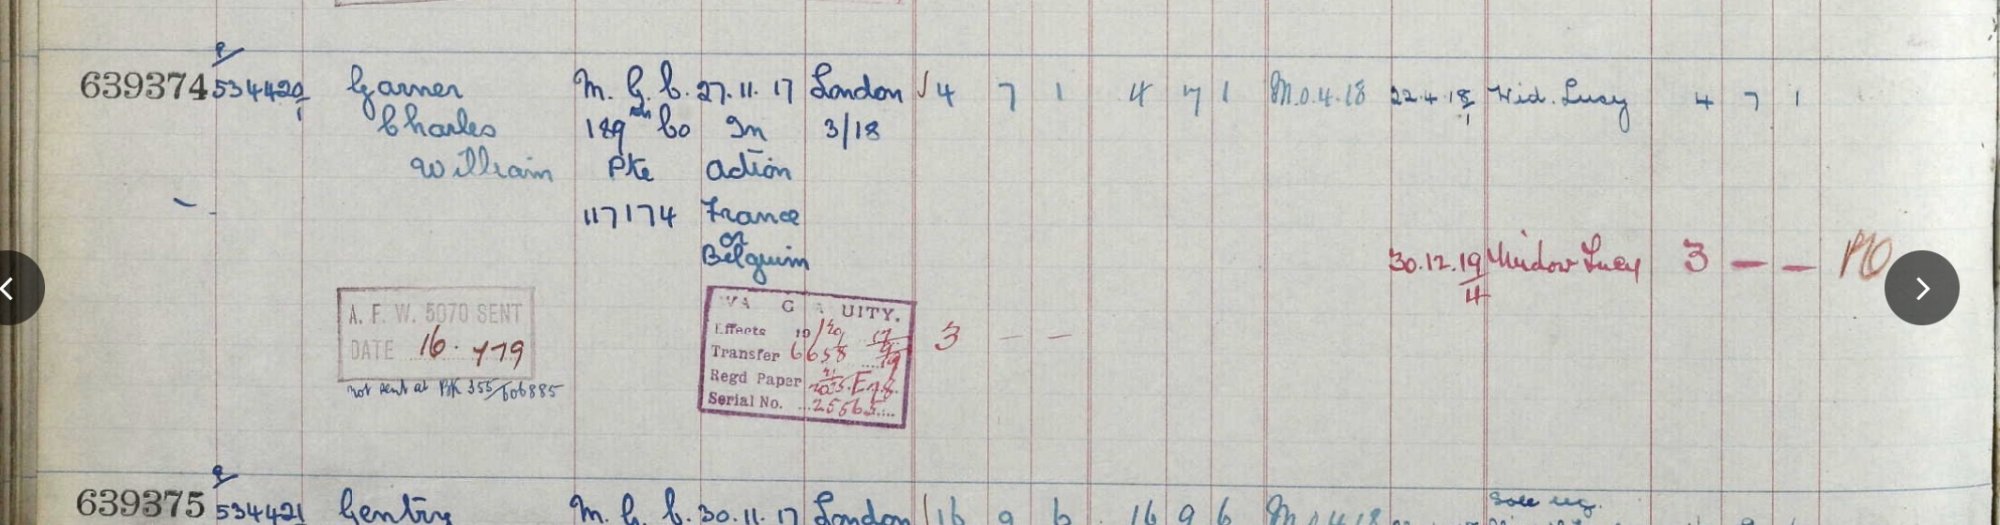 639374 534420/1 Garner M. G. C. 27.11.17 London 4 7 1 4 7 1 M.O.4.18 22.4.18/1 Wid. Lucy 4 7 1
Charles 189th Co In 3/18
William Pte action
117174 France
or
Belguim
30.12.19/4 Widow Lucy 3 — — PO
A. F. W. 5070 SENT
DATE 16.
not sent at 355/606885
UITY. 3 — —
Effects 19
Transfer 6658
Regd Paper
Serial No.
639375 534421 Gentry M. G. C. 30.11.17 London 16 9 6 16 9 6 M.O.4.18 Sole leg.